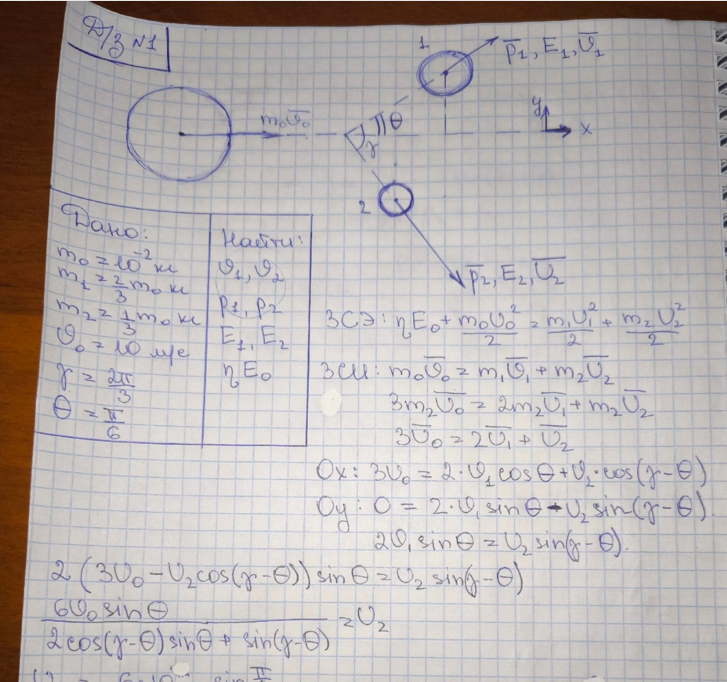 Д/З №1
1
p̅₁, E₁, υ̅₁
m₀υ̅₀
θ
γ
y
x
2
p̅₂, E₂, υ̅₂
Дано:
m₀ = 10⁻² кг
m₁ = 2/3 m₀ кг
m₂ = 1/3 m₀ кг
υ₀ = 10 м/с
γ = 2π/3
θ = π/6
Найти:
υ₁, υ₂
p₁, p₂
E₁, E₂
ηE₀
ЗСЭ: ηE₀ + m₀υ₀²/2 = m₁υ₁²/2 + m₂υ₂²/2
ЗСИ: m₀υ̅₀ = m₁υ̅₁ + m₂υ̅₂
3m₂υ̅₀ = 2m₂υ̅₁ + m₂υ̅₂
3υ̅₀ = 2υ̅₁ + υ̅₂
Ox: 3υ₀ = 2·υ₁cosθ + υ₂·cos(γ-θ)
Oy: 0 = 2·υ₁sinθ - υ₂sin(γ-θ).
2υ₁sinθ = υ₂sin(γ-θ).
2(3υ₀ - υ₂cos(γ-θ))sinθ = υ₂sin(γ-θ)
6υ₀sinθ / 2cos(γ-θ)sinθ + sin(γ-θ) = υ₂